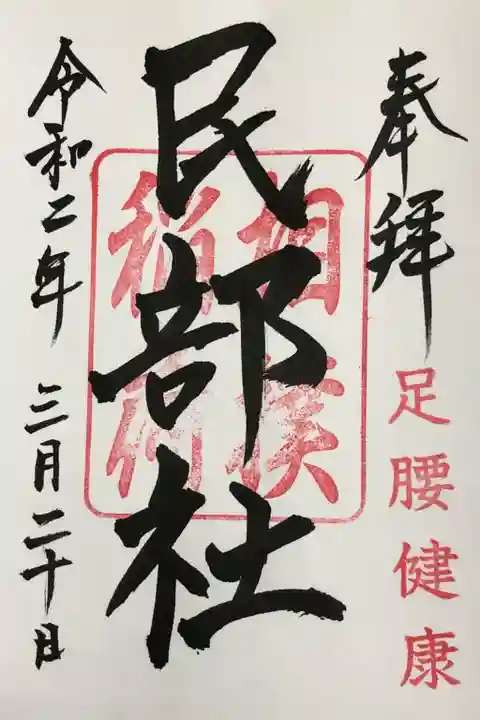 奉拝
足腰健康
民部社
相模
稲荷
令和二年 三月二十日